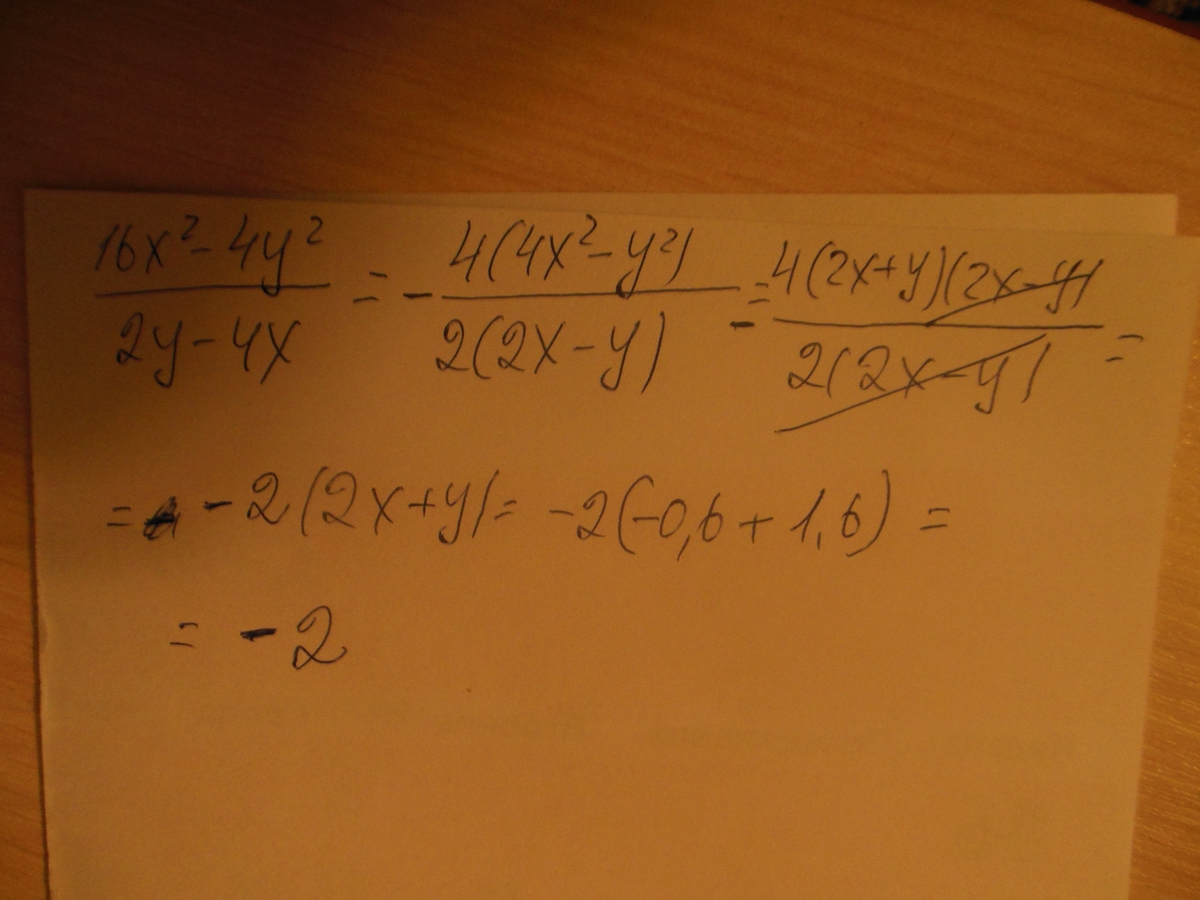 (16x² - 4y²)/(2y - 4x) = - (4(4x² - y²))/(2(2x - y)) = - (4(2x+y)(2x-y))/(2(2x-y)) =
= - 2(2x+y) = -2(-0,6 + 1,6) =
= - 2